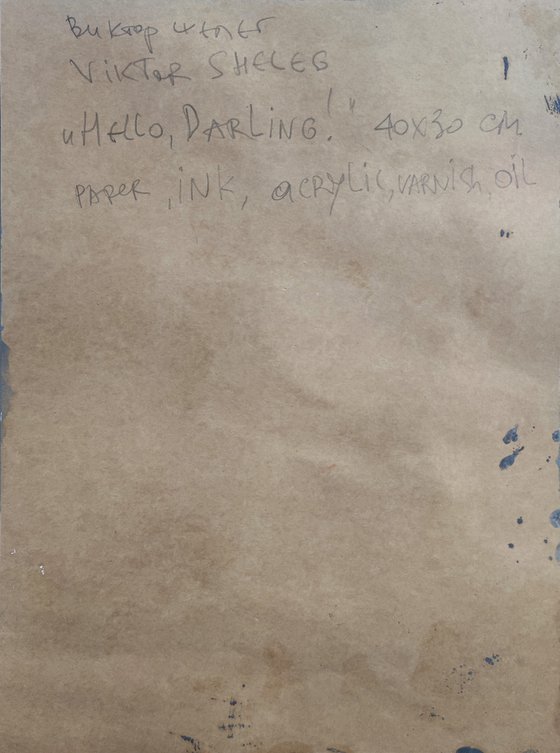 Виктор Шелег
VIKTOR SHELEG
„HELLO, DARLING!" 40x30 CM
PAPER, INK, ACRYLIC, VARNISH, OIL